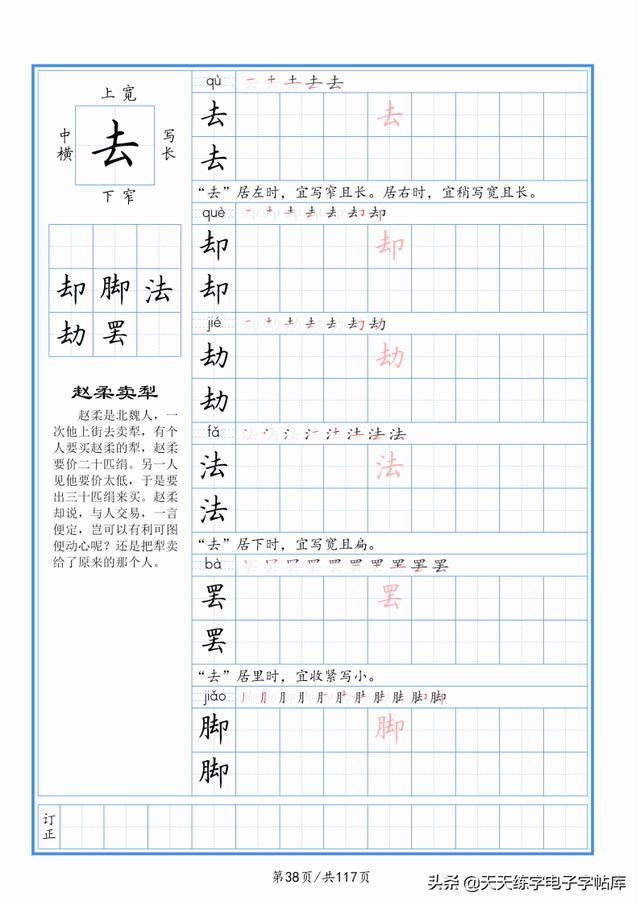 上宽
中横
去
写长
下窄
却脚法
劫罢
赵柔卖犁
赵柔是北魏人，一
次他上街去卖犁，有个
人要买赵柔的犁，赵柔
要价二十匹绢。另一人
见他要价太低，于是要
出三十匹绢来买。赵柔
却说，与人交易，一言
便定，岂可以有利可图
便动心呢？还是把犁卖
给了原来的那个人。
qù
去 去
去
“去”居左时，宜写窄且长。居右时，宜稍写宽且长。
què
却 却
却
jié
劫 劫
劫
fǎ
法 法
法
“去”居下时，宜写宽且扁。
bà
罢 罢
罢
“去”居里时，宜收紧写小。
jiǎo
脚 脚
脚
订正
第38页/共117页
头条 @天天练字电子字帖库